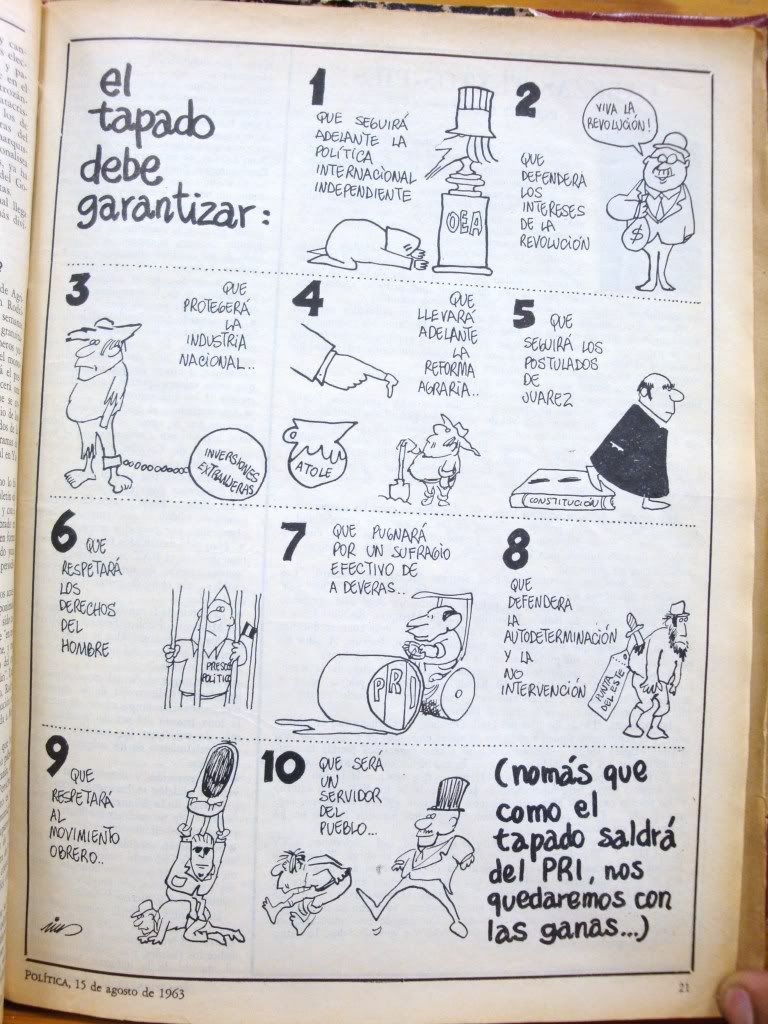 el
tapado
debe
garantizar:
1
QUE SEGUIRÁ
ADELANTE LA
POLÍTICA
INTERNACIONAL
INDEPENDIENTE
OEA
2
VIVA LA
REVOLUCIÓN!
QUE
DEFENDERÁ
LOS
INTERESES
DE LA
REVOLUCIÓN
$
3
QUE
PROTEGERÁ
LA
INDUSTRIA
NACIONAL..
INVERSIONES
EXTRANJERAS
4
QUE
LLEVARÁ
ADELANTE
LA
REFORMA
AGRARIA...
ATOLE
5
QUE
SEGUIRÁ LOS
POSTULADOS
DE
JUAREZ
CONSTITUCIÓN
6
QUE
RESPETARÁ
LOS
DERECHOS
DEL
HOMBRE
PRESO
POLÍTICO
7
QUE PUGNARÁ
POR UN SUFRAGIO
EFECTIVO DE
A DEVERAS..
PRI
8
QUE
DEFENDERA
LA
AUTODETERMINACIÓN
Y LA
NO
INTERVENCIÓN
PUNTA
DEL ESTE
9
QUE
RESPETARÁ
AL
MOVIMIENTO
OBRERO..
10
QUE SERÁ
UN
SERVIDOR
DEL
PUEBLO...
(nomás que
como el
tapado saldrá
del PRI, nos
quedaremos con
las ganas...)
POLÍTICA, 15 de agosto de 1963
21